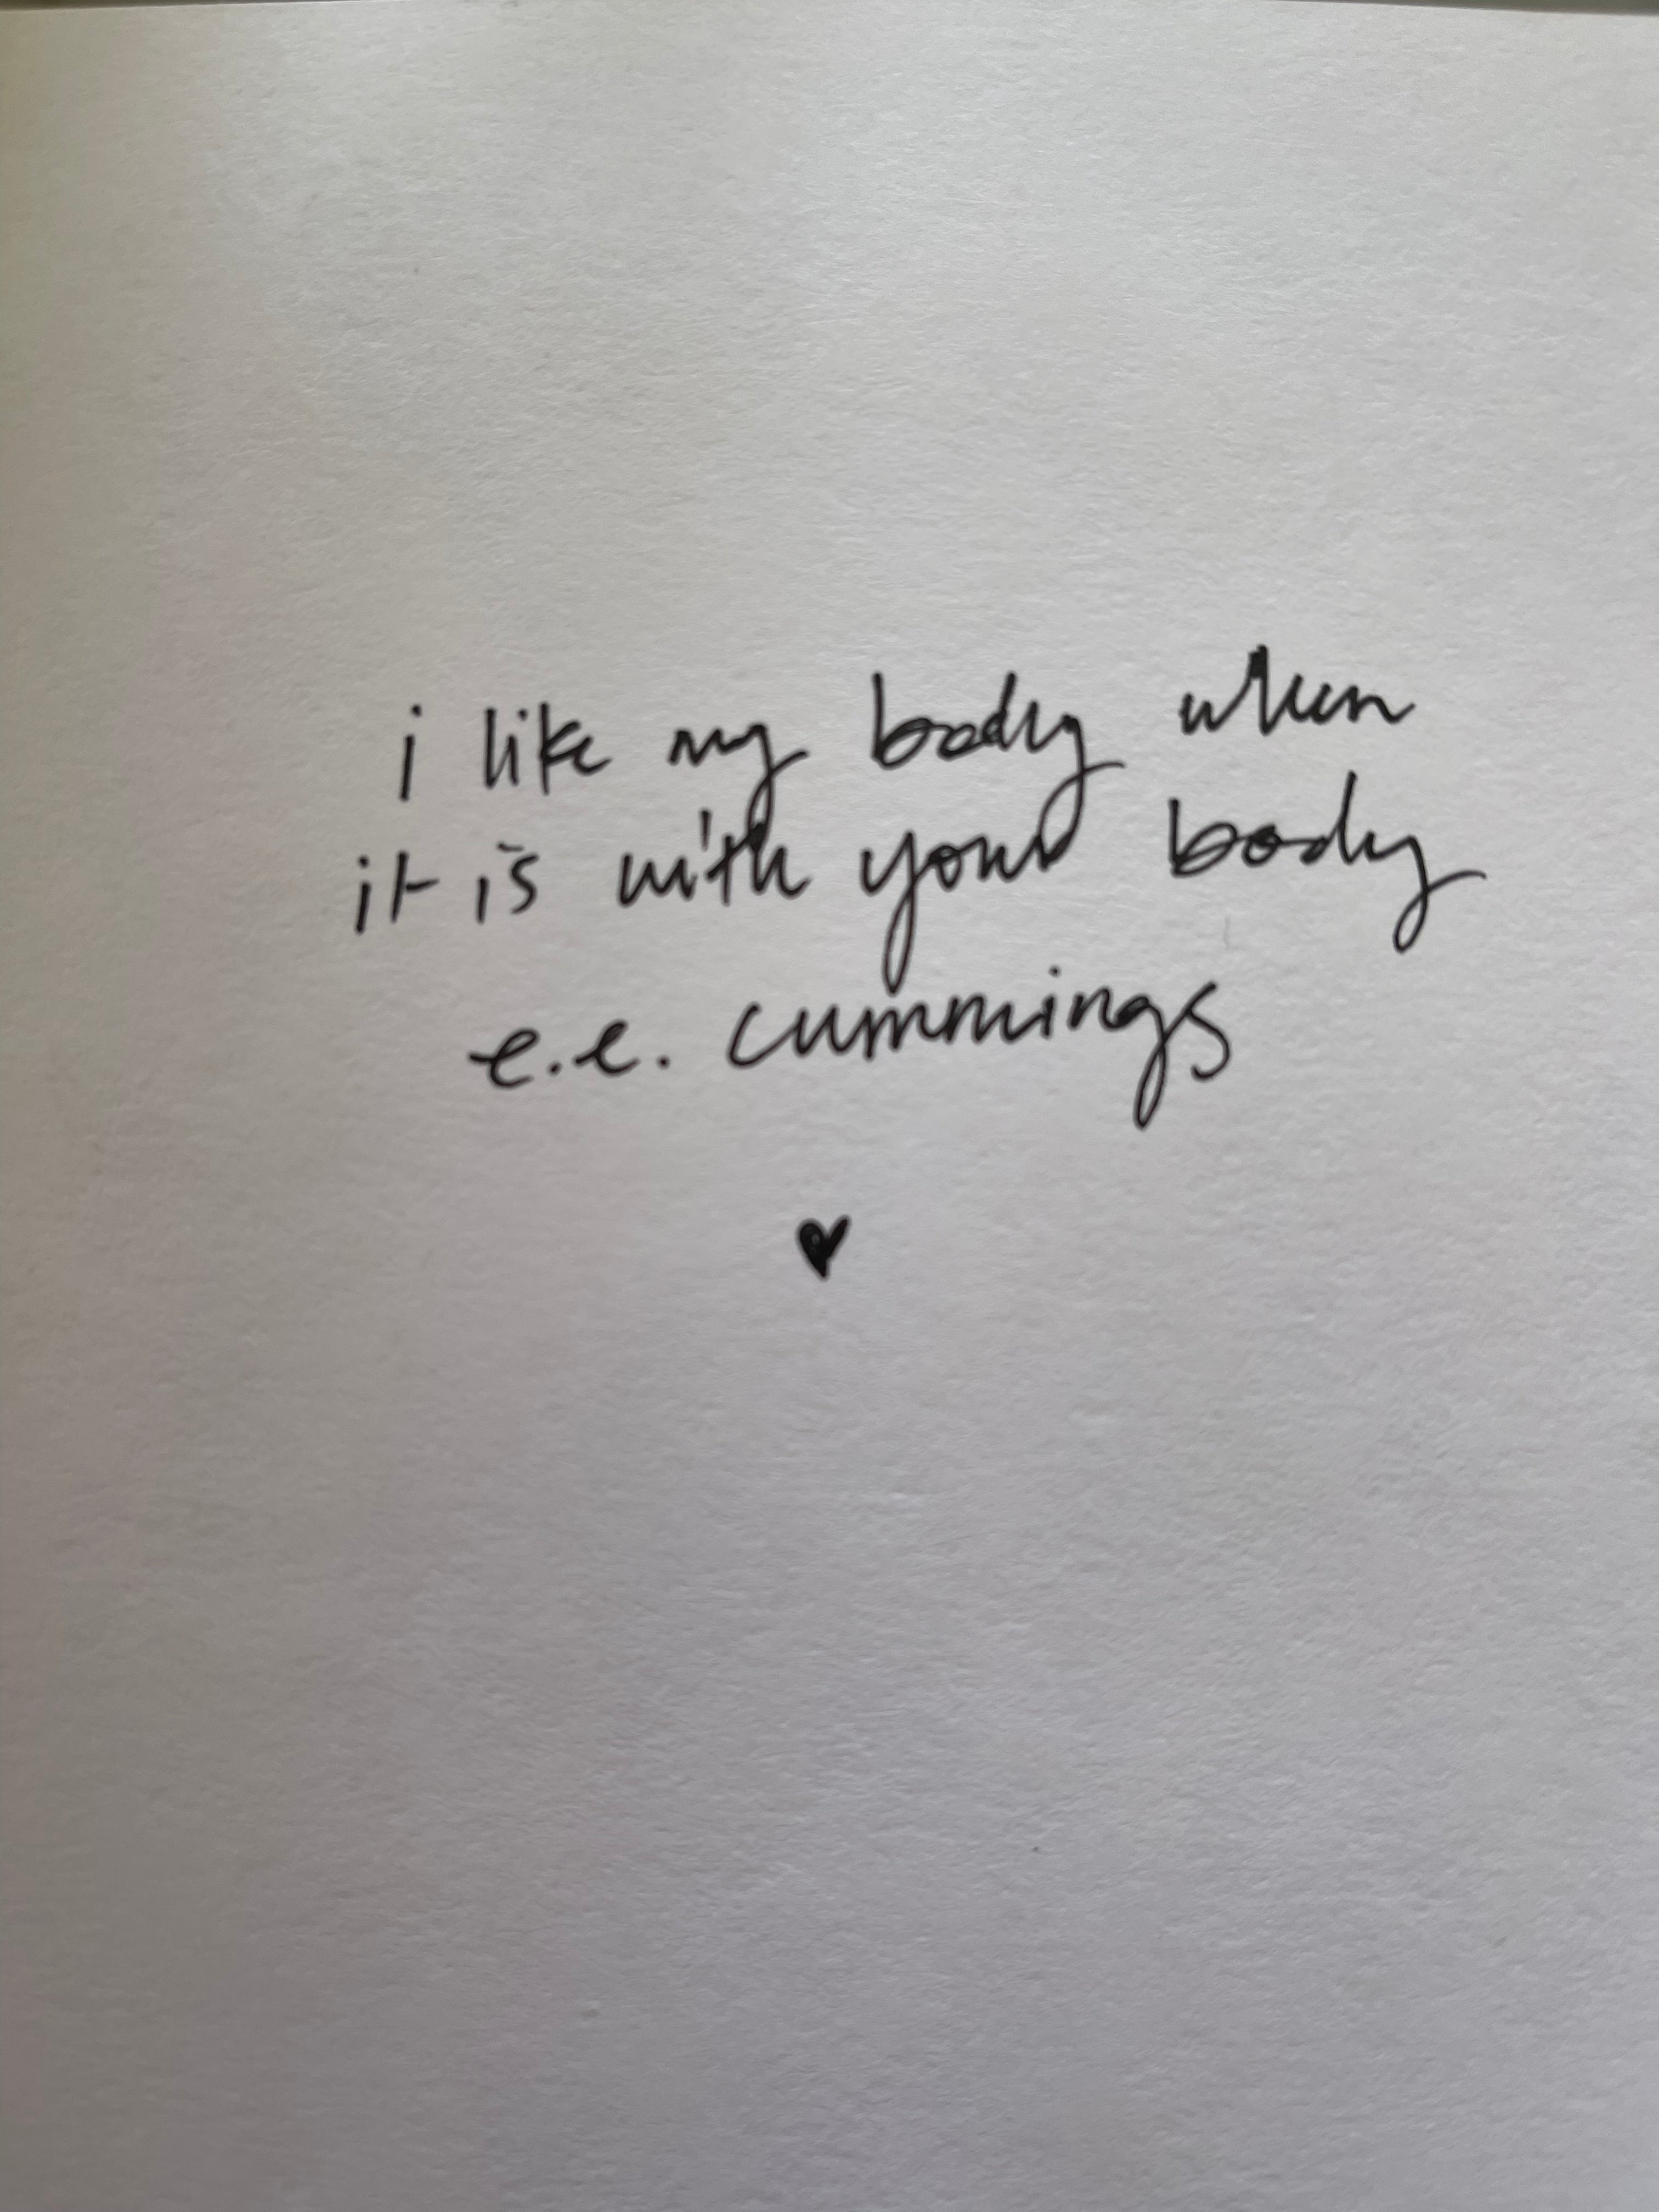 i like my body when
it is with your body
e.e. cummings